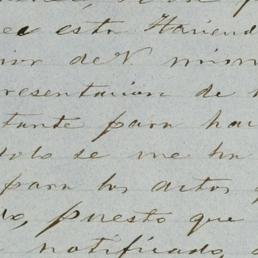 esta Hacienda
de V. mism
presentacion de
tante para hac
dolo se me ha
para los actos
do, puesto que
notificado,